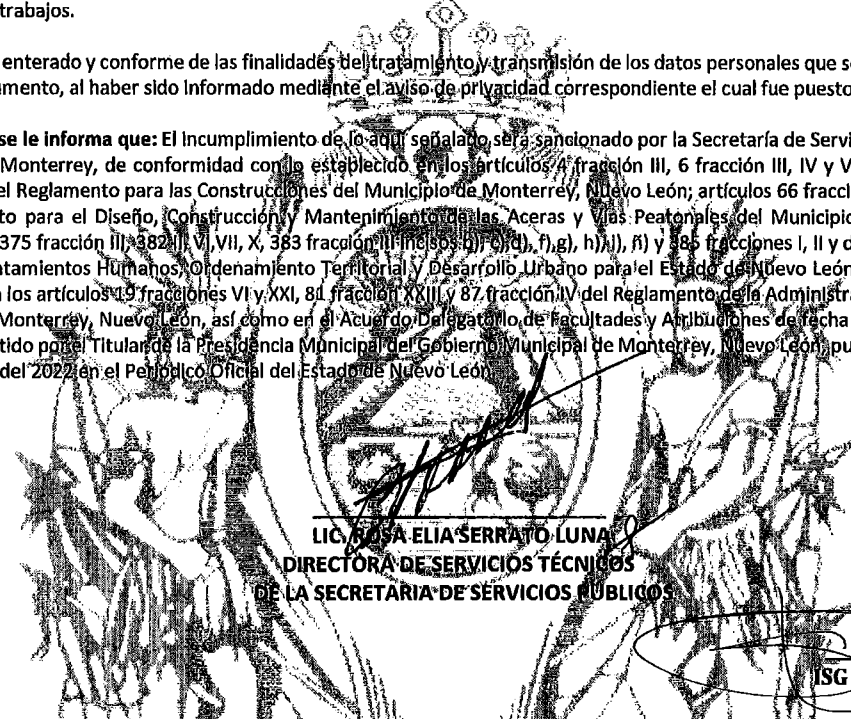 trabajos.
enterado y conforme de las finalidades del tratamiento y transmisión de los datos personales que s
umento, al haber sido informado mediante el aviso de privacidad correspondiente el cual fue puesto
se le informa que: El incumplimiento de lo aquí señalado será sancionado por la Secretaría de Servi
Monterrey, de conformidad con lo establecido en los artículos 4 fracción III, 6 fracción III, IV y V
el Reglamento para las Construcciones del Municipio de Monterrey, Nuevo León; artículos 66 fracci
to para el Diseño, Construcción y Mantenimiento de las Aceras y Vías Peatonales del Municipio
375 fracción III, 382 II, VI,VII, X, 383 fracción III incisos b), c),d), f),g), h),i), ñ) y 385 fracciones I, II y d
ntamientos Humanos, Ordenamiento Territorial y Desarrollo Urbano para el Estado de Nuevo León
los artículos 19 fracciones VI y XXI, 81 fracción XXIII y 87 fracción IV del Reglamento de la Administra
Monterrey, Nuevo León, así como en el Acuerdo Delegatorio de Facultades y Atribuciones de fecha
tido por el Titular de la Presidencia Municipal del Gobierno Municipal de Monterrey, Nuevo León, pu
del 2022 en el Periódico Oficial del Estado de Nuevo León.
LIC. ROSA ELIA SERRATO LUNA
DIRECTORA DE SERVICIOS TÉCNICOS
DE LA SECRETARIA DE SERVICIOS PÚBLICOS
ISG